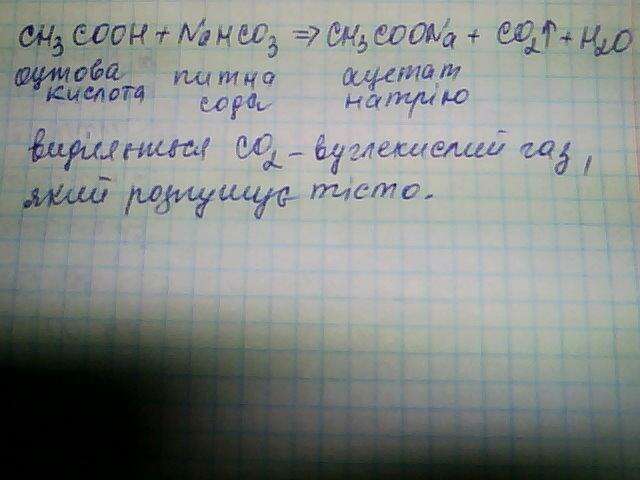 CH₃COOH + NaHCO₃ ⇒ CH₃COONa + CO₂↑ + H₂O
оцтова питна ацетат
кислота сода натрію
виділяється CO₂ – вуглекислий газ,
який розпушує тісто.